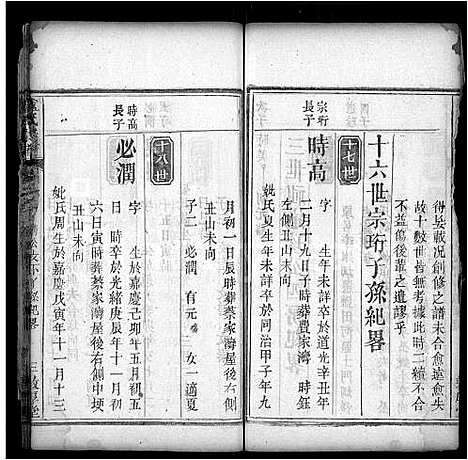 得妄載况創修之譜未合愈遠愈失
故十數世皆無考據此時二續不合
不益傷後輩之遺謬乎
十六世宗珩子孫紀畧
十七世
宗珩
長子
時高
字 生年未詳卒於道光
二月十九日子時葬費家灣 時鈺
左側丑山未向
妣氏夏生年未詳卒於同治甲子年九
月初一日辰時葬蔡家灣屋後右側
丑山未向
子二 必潤 有元 女一適夏
十八世
時高
長子
必潤
字 生於嘉慶己卯年五月初五
日 時卒於光緒庚辰年十一月初
六日寅時葬蔡家灣屋後右側中埂
丑山未向
妣氏周生於嘉慶戊寅年十一月十三